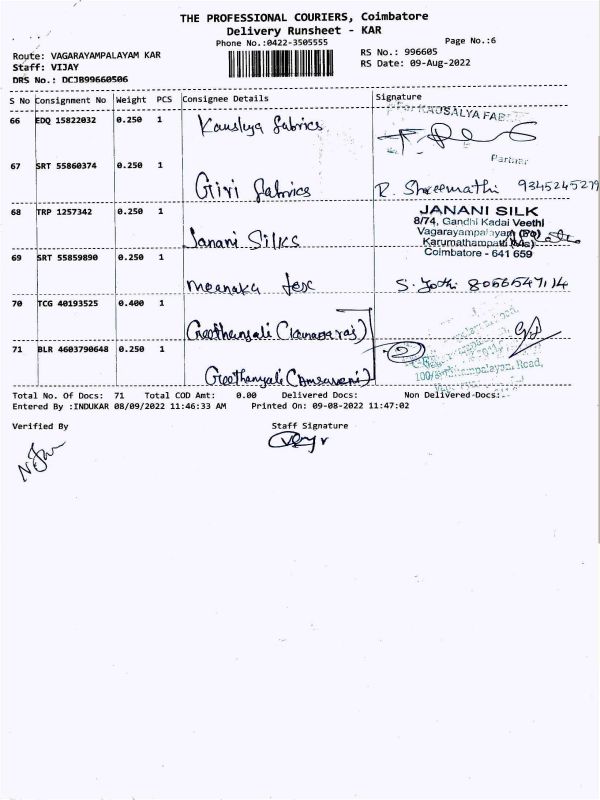 THE PROFESSIONAL COURIERS, Coimbatore
Delivery Runsheet - KAR
Phone No.:0422-3505555
Page No.:6
Route: VAGARAYAMPALAYAM KAR
RS No.: 996605
Staff: VIJAY
RS Date: 09-Aug-2022
DRS No.: DCJB99660506
S No Consignment No Weight PCS Consignee Details Signature
66 EDQ 15822032 0.250 1 Kauslya fabrics
KAUSALYA FAB
Partner
67 SRT 55860374 0.250 1 Giri fabrics R. Shreemathi 9345245279
68 TRP 1257342 0.250 1 Janani Silks
JANANI SILK
8/74, Gandhi Kadai Veethi
Vagarayampalayam (PO)
Karumathampatti
Coimbatore - 641 659
69 SRT 55859890 0.250 1 meenaka tex S. Jothi
70 TCG 40193525 0.400 1 Geethanjali (kanagaraj)
71 BLR 4603790648 0.250 1 Geethanyali (Amsaveni)
Road,
Total No. Of Docs: 71 Total COD Amt: 0.00 Delivered Docs: Non Delivered Docs:
Entered By :INDUKAR 08/09/2022 11:46:33 AM Printed On: 09-08-2022 11:47:02
Verified By Staff Signature